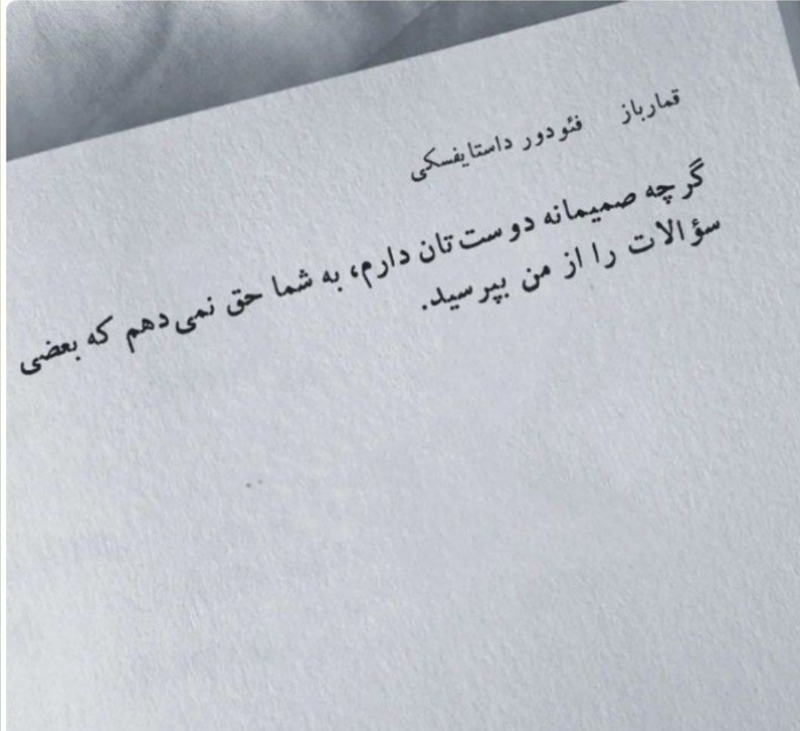 قمارباز فئودور داستایفسکی
گرچه صمیمانه دوست‌تان دارم، به شما حق نمی‌دهم که بعضی
سؤالات را از من بپرسید.